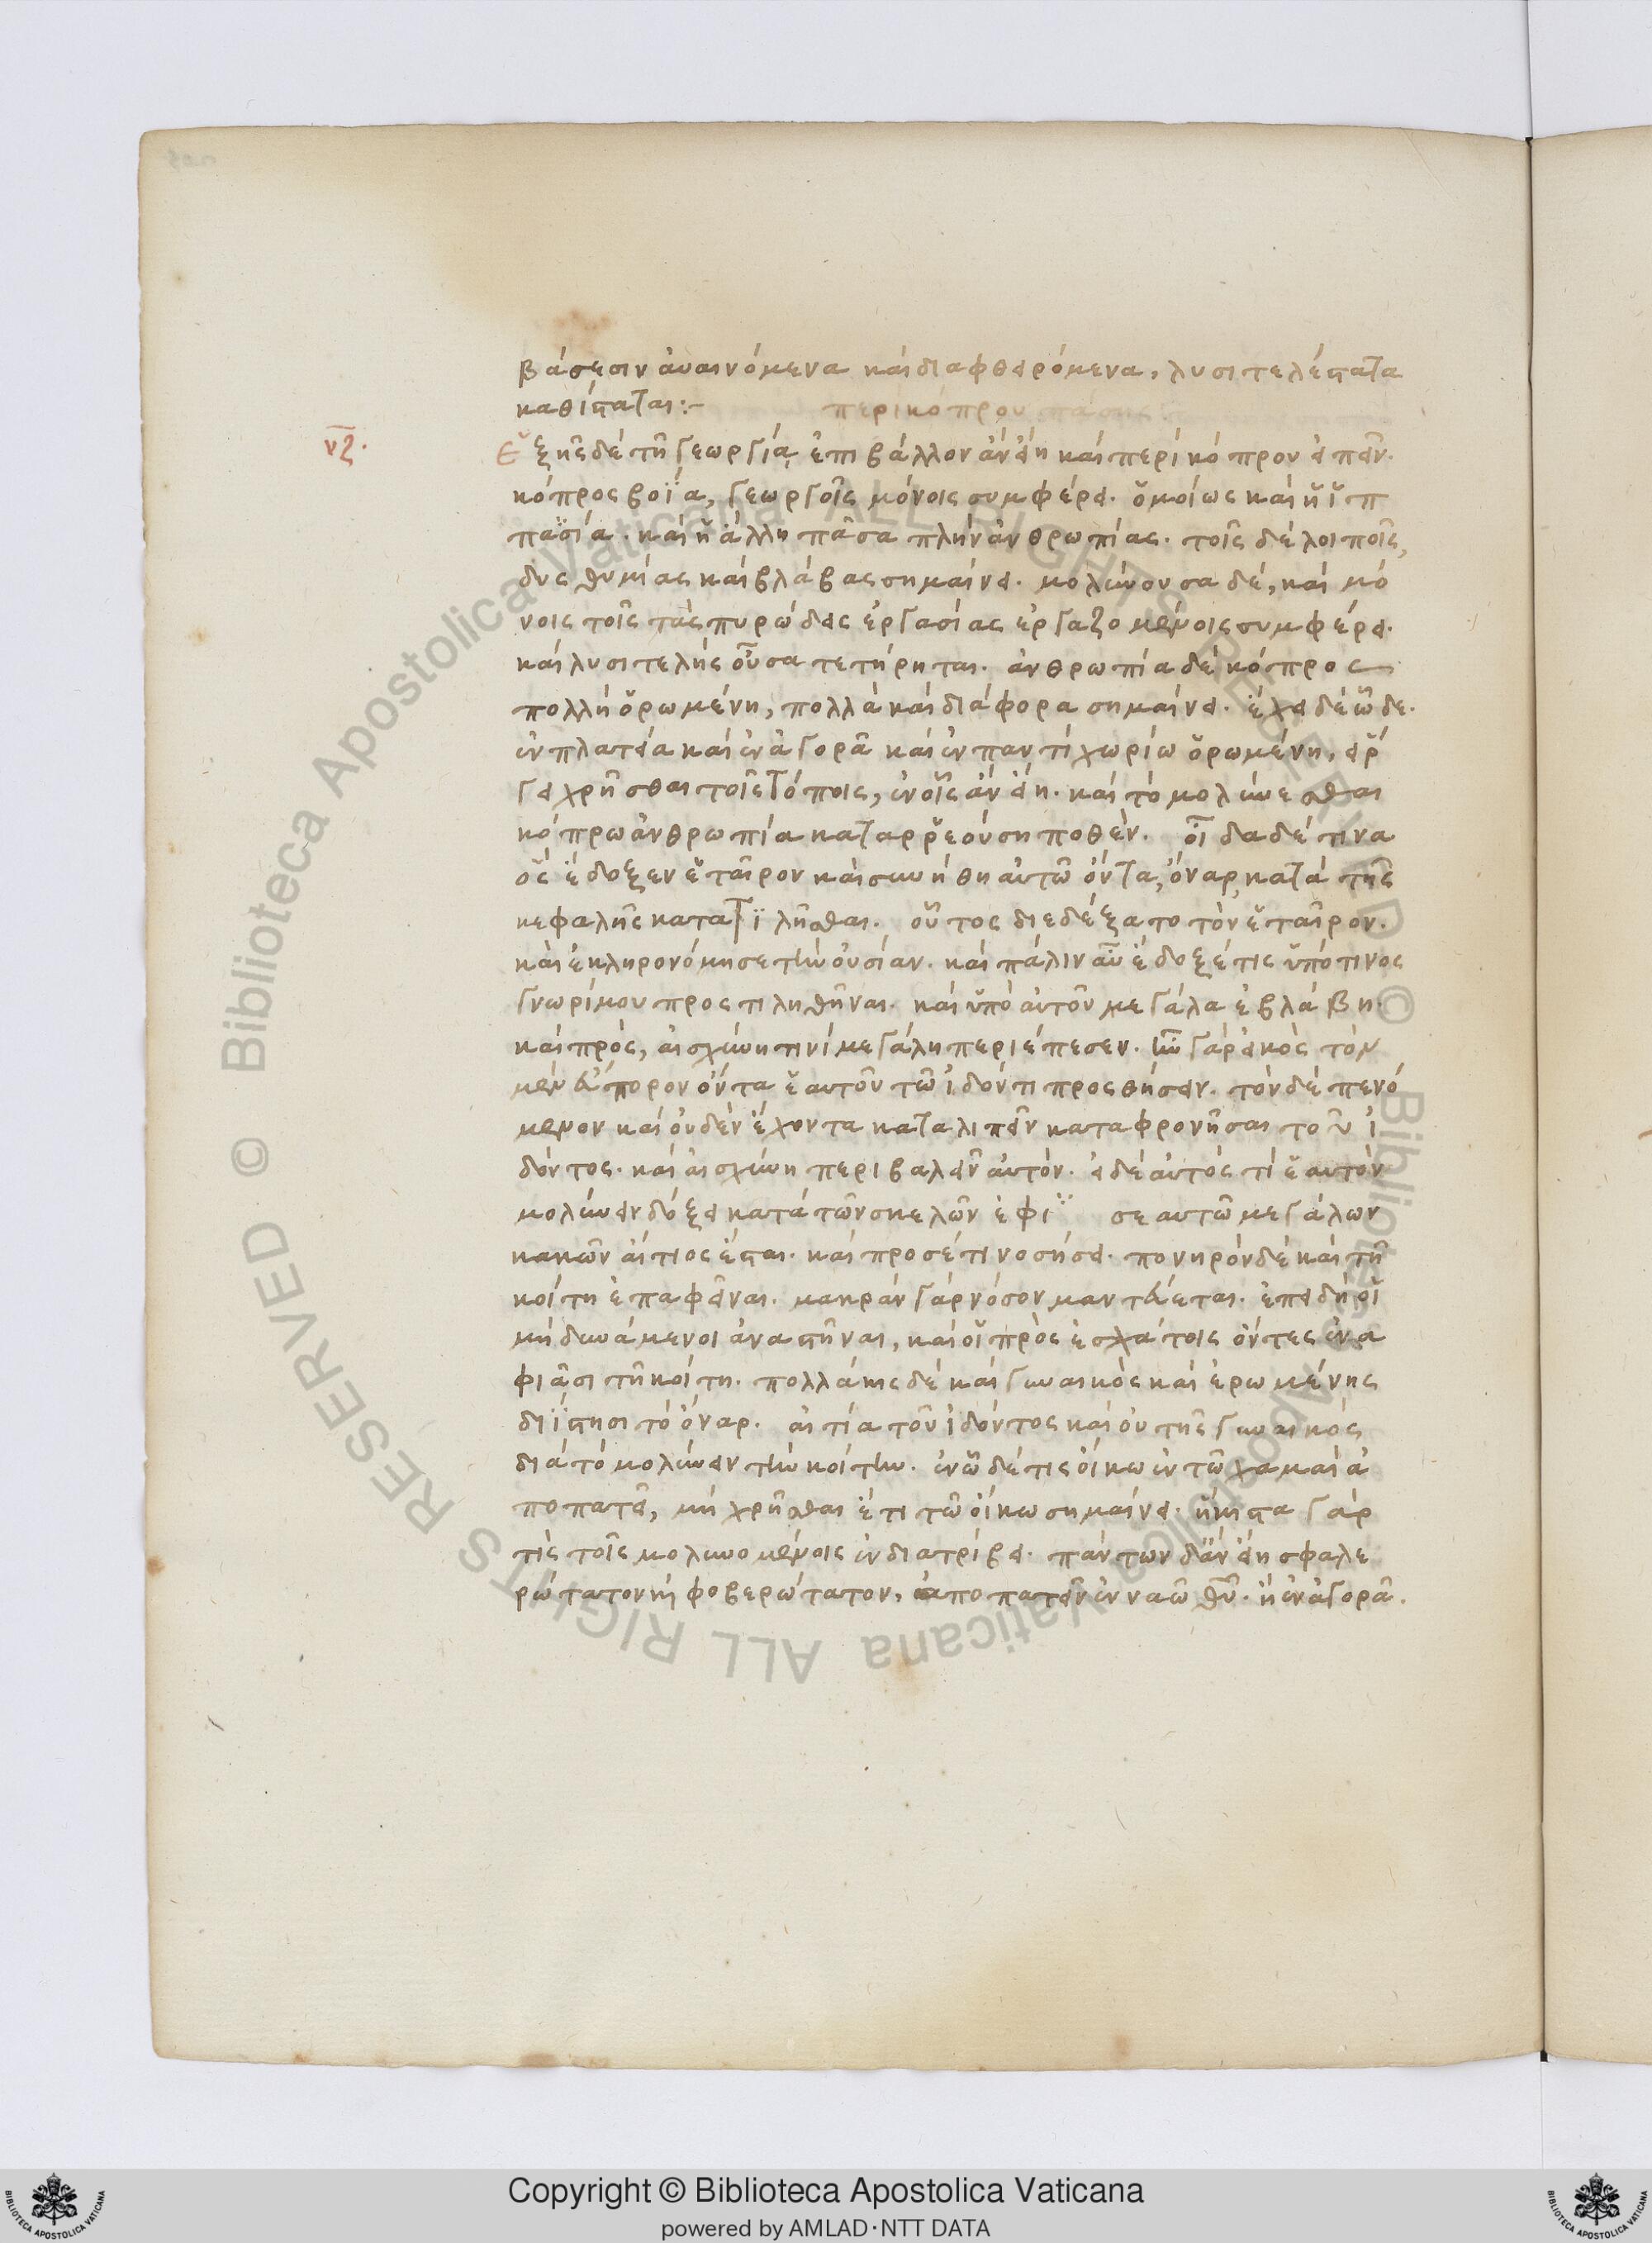 βάσεσιν ἀυαινόμενα καὶ διαφθειρόμενα, λυσιτελέστατα
καθίσταται:-
περὶ κόπρου πάσης
νζ.
Ἑξῆς δὲ τῆ γεωργία ἐπιβάλλον ἀν εἴη καὶ περὶ κόπρου εἰπεῖν.
κόπρος βοΐα, γεωργοῖς μόνοις συμφέρει. ὁμοίως καὶ ἡ ἱπ
πασία. καὶ ἡ ἄλλη πᾶσα πλὴν ἀνθρωπίας. τοῖς δὲ λοιποῖς,
δυσθυμίας καὶ βλάβας σημαίνει. μολύνουσα δὲ, καὶ μό
νοις τοῖς τὰς πυρώδεις ἐργασίας ἐργαζομένοις συμφέρει.
καὶ λυσιτελὴς οὖσα τετήρηται. ἀνθρωπία δὲ κόπρος
πολλὴ ὁρωμένη, πολλὰ καὶ διάφορα σημαίνει. ἔχει δὲ ὧδε.
ἐν πλατεία καὶ ἐν ἀγορᾶ καὶ ἐν παντὶ χωρίω ὁρωμένη, εἴρ
γει χρῆσθαι τοῖς τόποις, ἐν οἷς ἀν εἴη. καὶ τὸ μολύνεσθαι
κόπρω ἀνθρωπία καταρρεούση ποθὲν. οἶδα δέ τινα
ὃς ἔδοξεν ἑταῖρον καὶ συνήθη αὐτῶ ὄντα, ὄναρ κατὰ τῆς
κεφαλῆς κατατϊλῆσθαι. οὗτος διεδέξατο τὸν ἑταῖρον.
καὶ ἐκληρονόμησε τὴν οὐσίαν. καὶ πάλιν αὖ ἔδοξέ τις ὑπό τινος
γνωρίμου προστιληθῆναι. καὶ ὑπὸ αὐτοῦ μεγάλα ἐβλάβη.
καὶ πρὸς, αἰσχύνη τινὶ μεγάλη περιέπεσεν. ἦν γὰρ εἰκὸς τὸν
μὲν εὔπορον ὄντα ἑαυτοῦ τῶ ἰδόντι προσθήσειν. τὸν δὲ πενό
μενον καὶ οὐδὲν ἔχοντα καταλιπεῖν καταφρονῆσαι τοῦ ἰ
δόντος. καὶ αἰσχύνη περιβαλεῖν αὐτόν. εἰ δὲ αὐτός τί ἑαυτὸν
μολύνειν δόξει κατὰ τῶν σκελῶν ἐφΐ σε αυτῶ μεγάλων
κακῶν αἴτιος ἔσται. καὶ προσέτι νοσήσει. πονηρὸν δὲ καὶ τῆ
κοίτη ἐπαφεῖναι. μακρὰν γὰρ νόσον μαντεύεται. ἐπειδὴ οἱ
μὴ δυνάμενοι ἀναστῆναι, καὶ οἱ πρὸς ἐσχάτοις ὄντες ἐνα
φιᾶσι τῆ κοίτη. πολλάκις δὲ καὶ γυναικὸς καὶ ἐρωμένης
διΐστησι τὸ ὄναρ. αἰτία τοῦ ἰδόντος καὶ οὐ τῆς γυναικός
διὰ τὸ μολύνειν τὴν κοίτην. ἐν ᾧ δέ τις οἴκω ἐν τῶ χαμαὶ ἀ
ποπατεῖ, μὴ χρῆσθαι ἔτι τῶ οἴκω σημαίνει. ἥκιστα γάρ
τὶς τοῖς μολυνομένοις ἐνδιατρίβει. πάντων δ' ἀν εἴη σφαλε
ρώτατον κὴ φοβερώτατον, ἀποπατεῖν ἐν ναῶ θῦ. ἢ ἐν ἀγορᾶ.